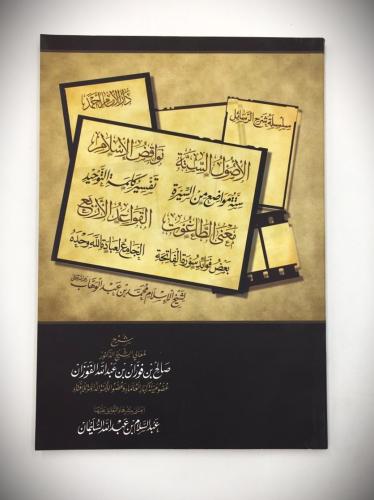 دار الإمام أحمد
سلسلة شرح الرسائل
الأصول الستة
نواقض الإسلام
ستة مواضع من السيرة
تفسير كلمة التوحيد
معنى الطاغوت
القواعد الأربع
بعض فوائد سورة الفاتحة
الجامع لعبادة الله وحده
لشيخ الإسلام محمد بن عبد الوهاب
شرح
معالي الشيخ الدكتور
صالح بن فوزان بن عبد الله الفوزان
عضو هيئة كبار العلماء وعضو اللجنة الدائمة للإفتاء
عبد السلام بن عبد الله السليمان